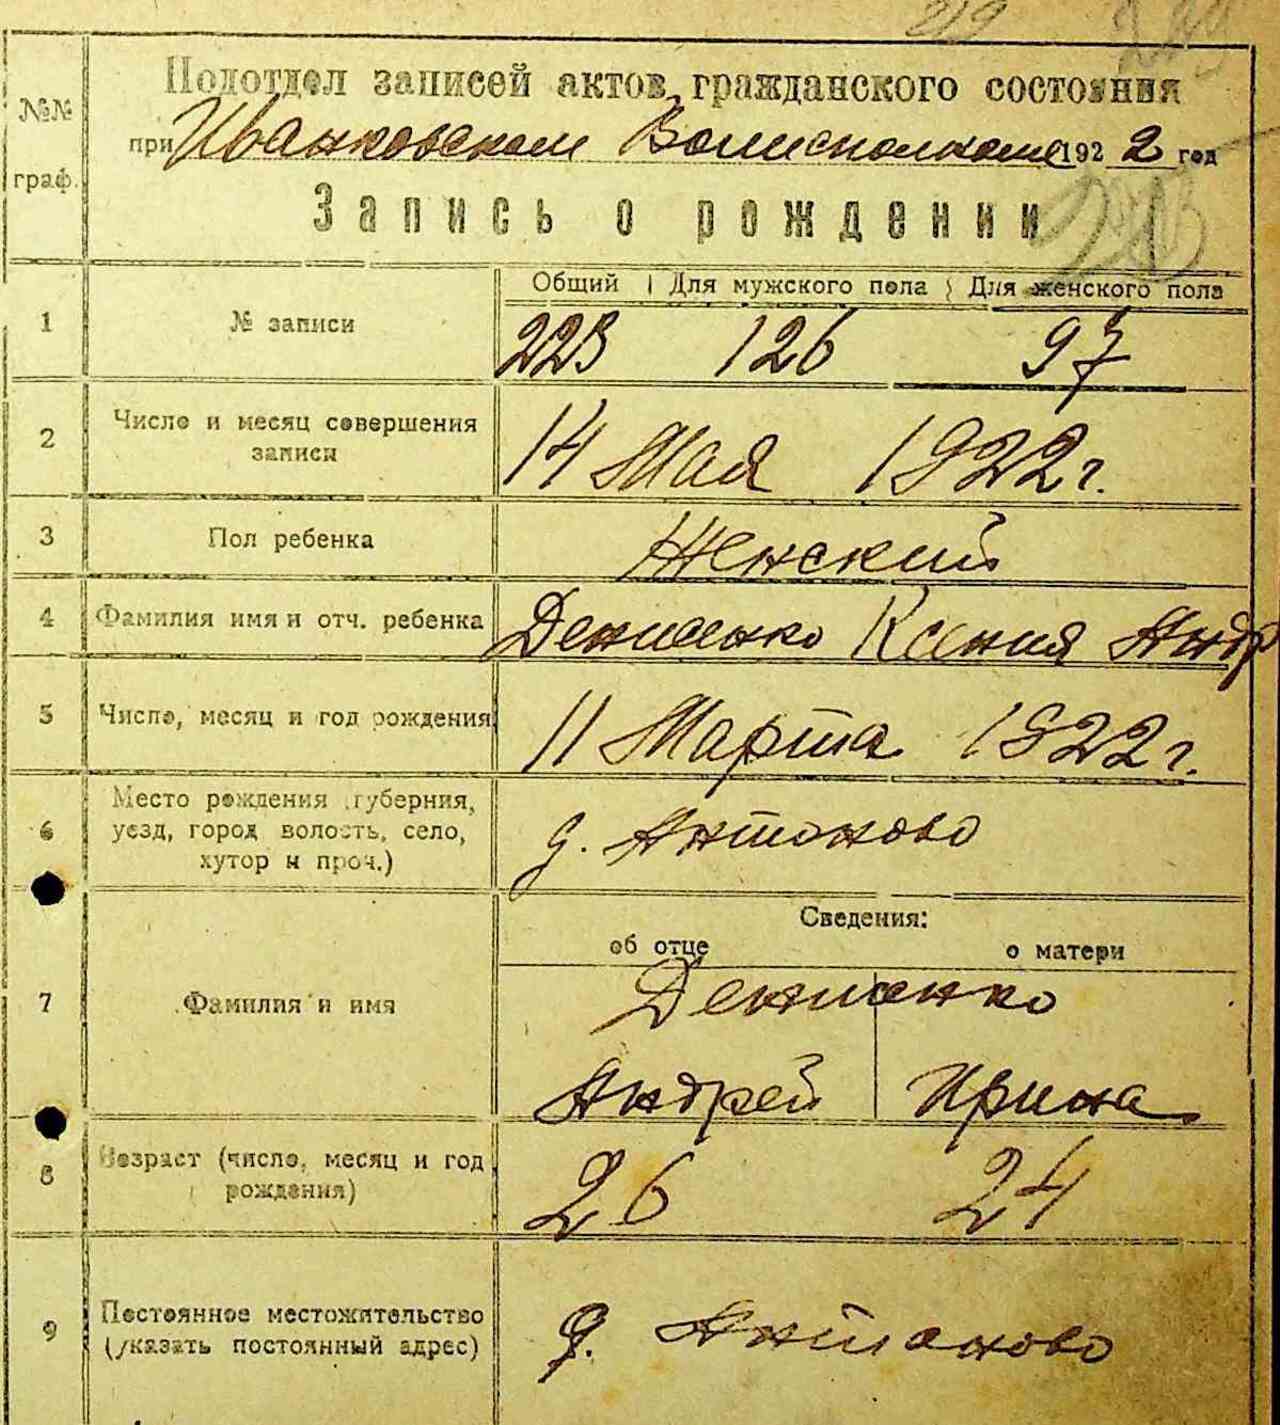 №№
граф.
Подотдел записей актов гражданского состояния
при Иванковском Волисполкоме 1922 год
Запись о рождении
Общий Для мужского пола Для женского пола
1 № записи 223 126 97
2 Число и месяц совершения
записи
14 Мая 1922 г.
3 Пол ребенка Женский
4 Фамилия имя и отч. ребенка Денисенко Ксения Андр
5 Число, месяц и год рождения 11 Марта 1922 г.
6 Место рождения (губерния,
уезд, город волость, село,
хутор и проч.)
д. Антоново
Сведения:
об отце о матери
7 Фамилия и имя
Денисенко
Андрей Ирина
8 Возраст (число, месяц и год
рождения)
26 24
9 Постоянное местожительство
(указать постоянный адрес)
д. Антоново